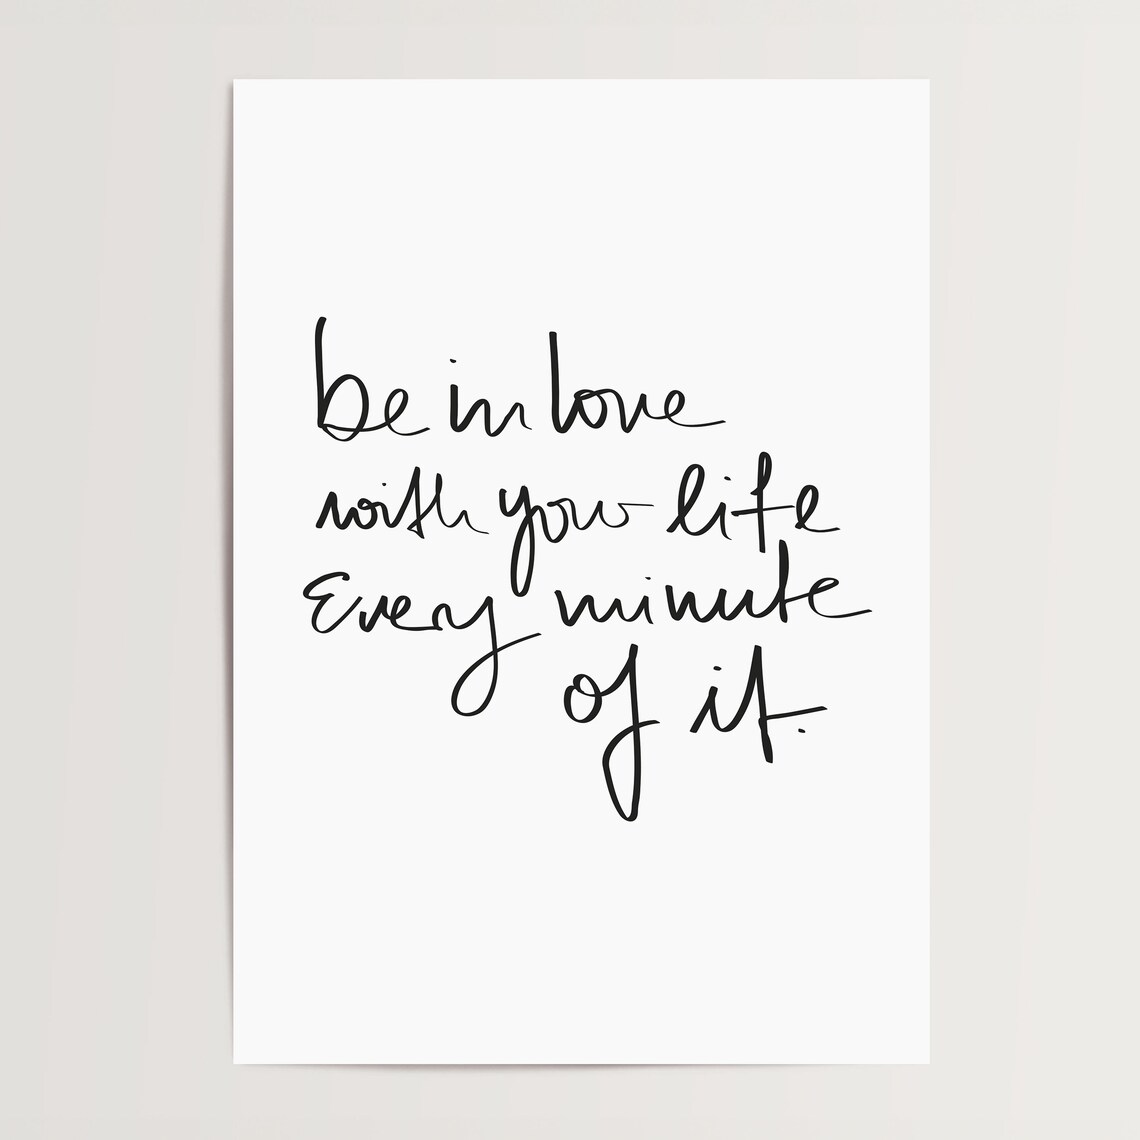 be in love
with your life
Every minute
of it.